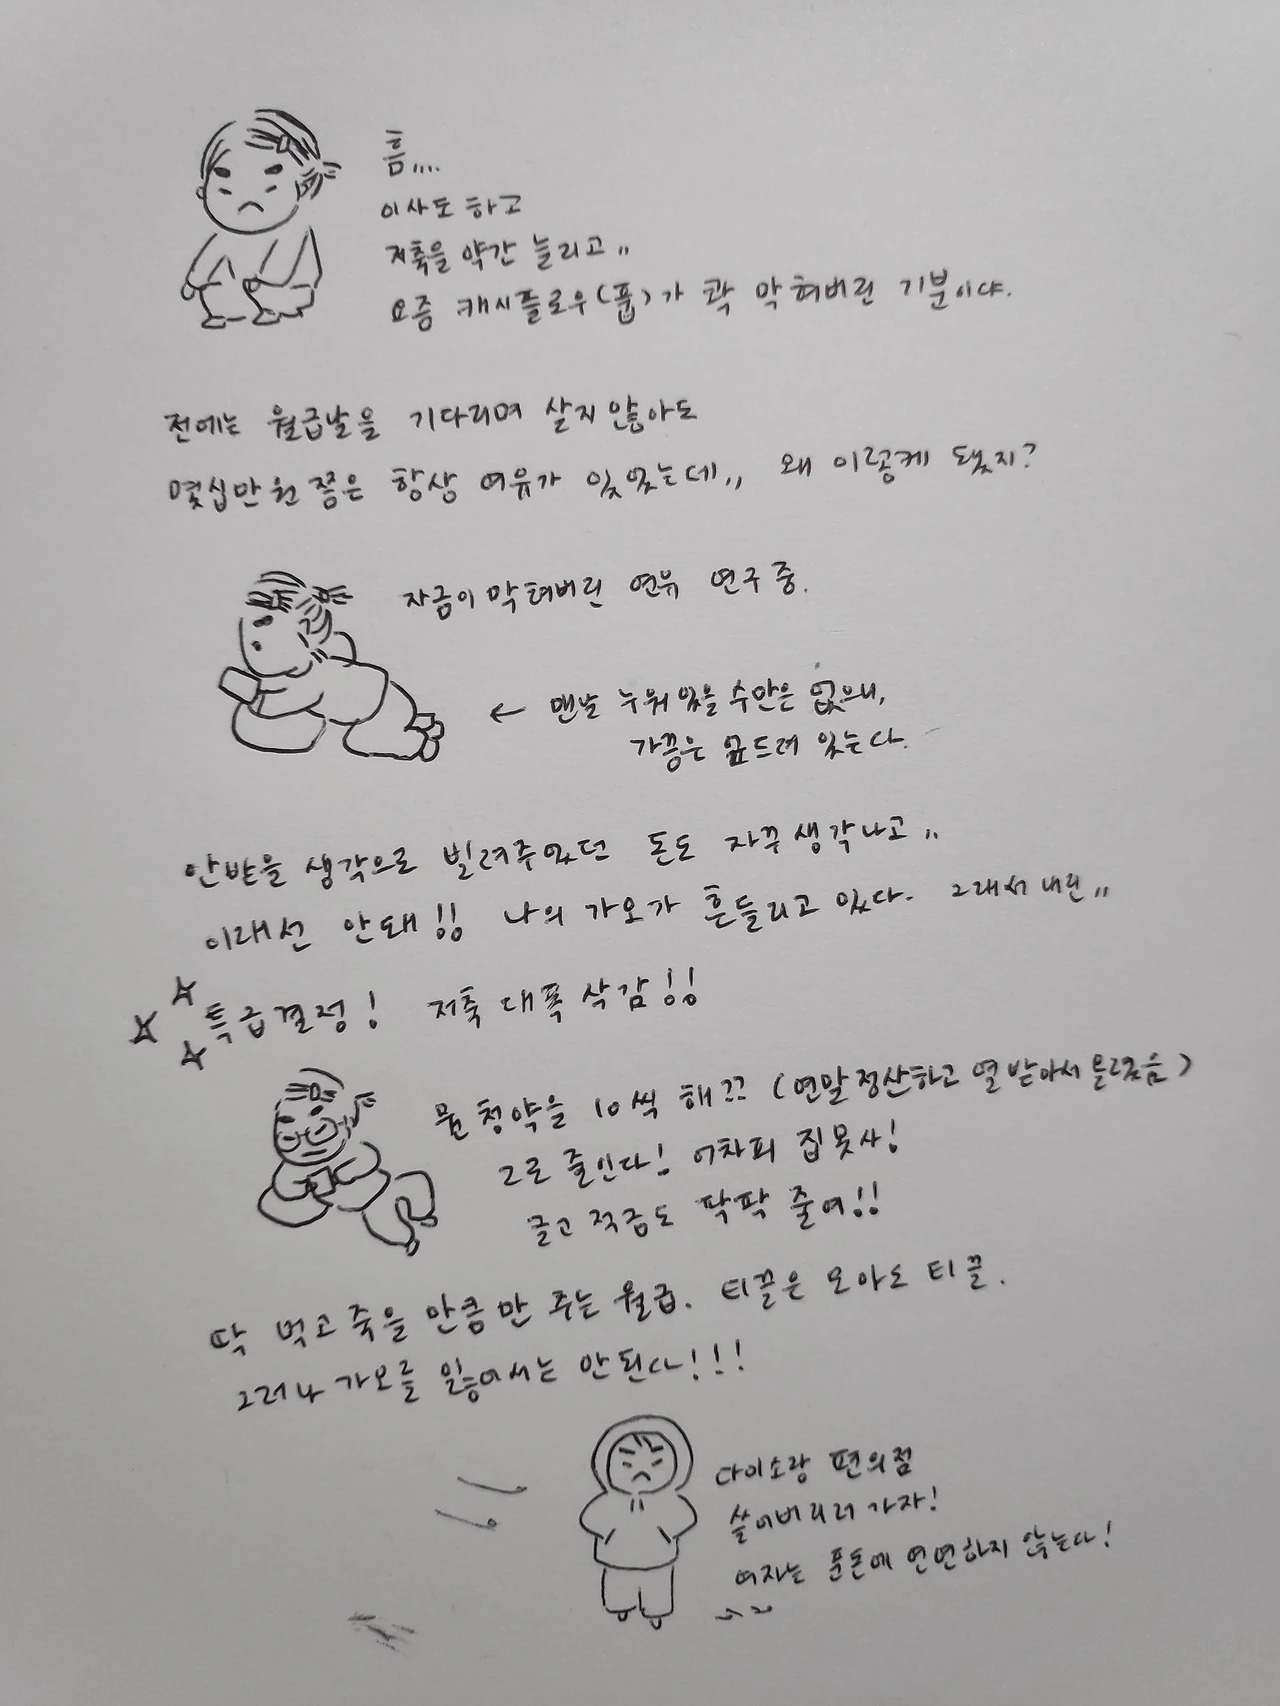 흠....
이사도 하고
저축을 약간 늘리고..
요즘 캐시플로우(풉)가 콱 막혀버린 기분이야.
전에는 월급날을 기다리며 살지 않아도
몇십만원쯤은 항상 여유가 있었는데.. 왜 이렇게 됐지?
자금이 막혀버린 연유 연구중.
← 맨날 누워있을 수만은 없으니,
가끔은 엎드려 있는다.
안받을 생각으로 빌려주었던 돈도 자꾸 생각나고..
이래선 안돼!! 나의 가오가 흔들리고 있다. 그래서 내린..
☆☆☆ 특급결정! 저축 대폭 삭감!!
뭔 청약을 10씩 해?? (연말정산하고 열받아서 올렸음)
2로 줄인다! 어차피 집 못사!
글고 적금도 팍팍 줄여!!
딱 먹고 죽을 만큼만 주는 월급. 티끌은 모아도 티끌.
그러나 가오를 잃어서는 안된다!!!
다이소랑 편의점
쓸어버리러 가자!
여자는 푼돈에 연연하지 않는다!